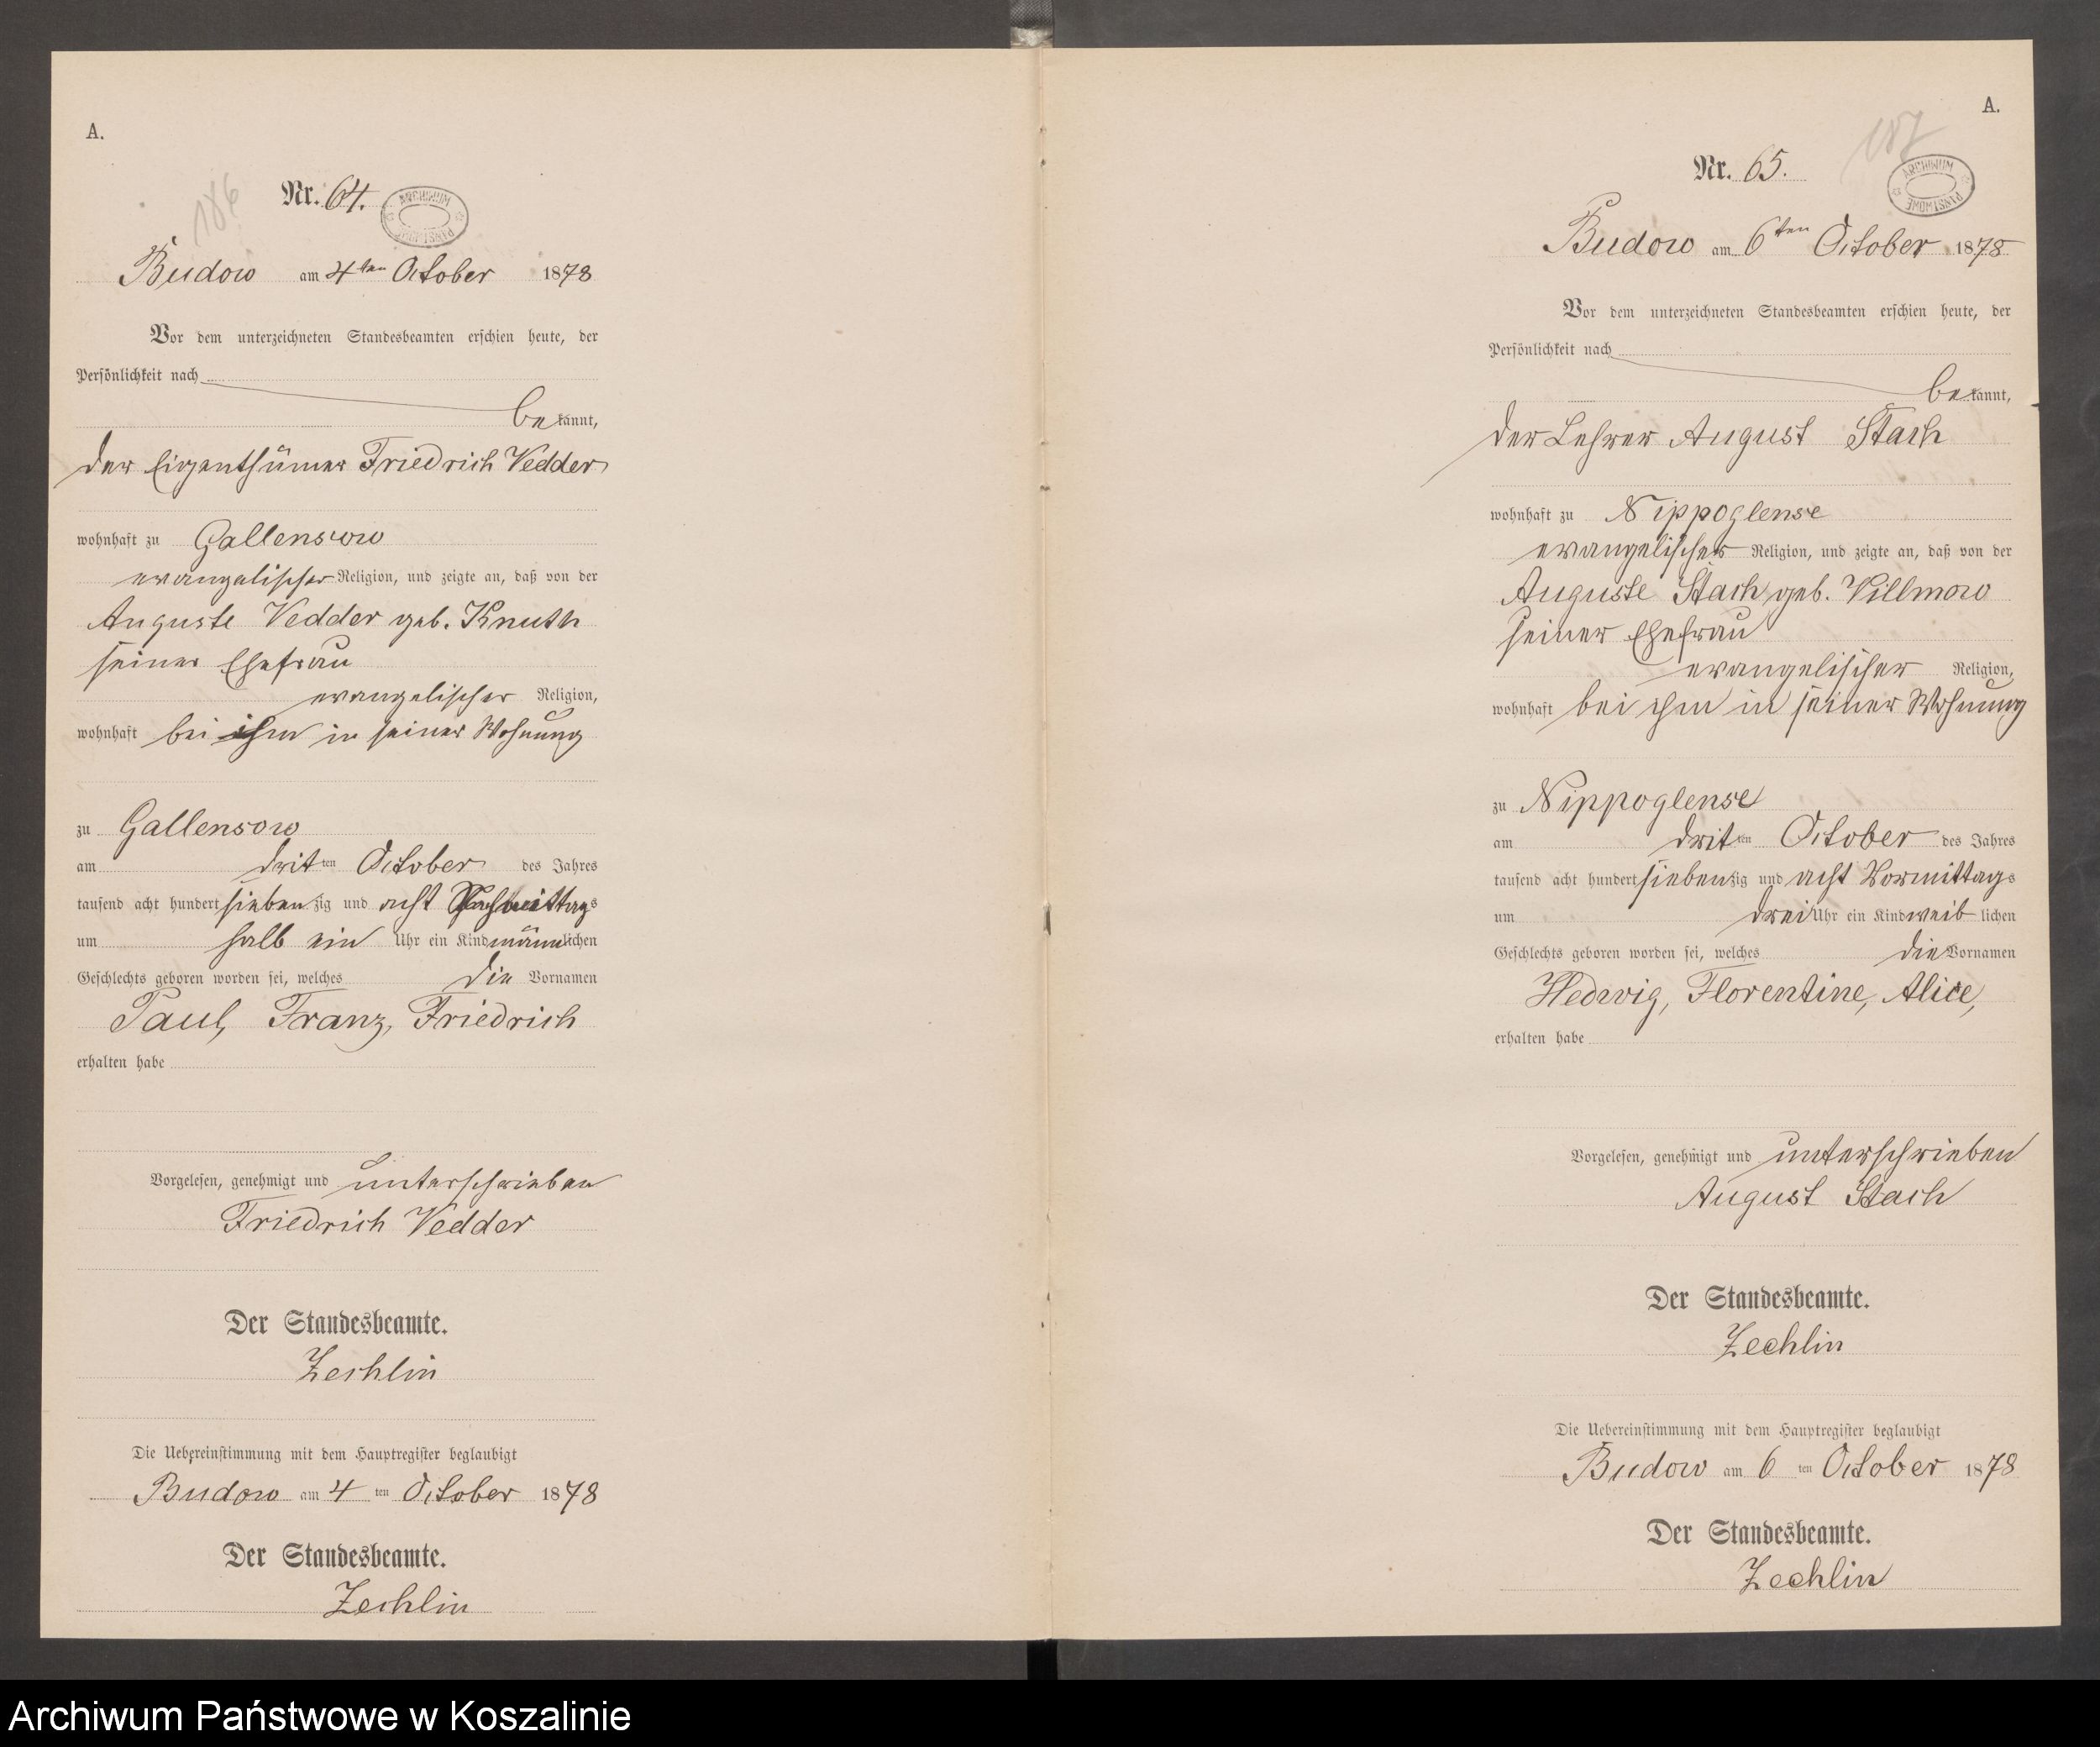 A.
186
Nr. 64.
ARCHIWUM PAŃSTWOWE
Budow am 4ten October 1878
Vor dem unterzeichneten Standesbeamten erschien heute, der
Persönlichkeit nach
bekannt,
der Eigenthümer Friedrich Vedder
wohnhaft zu Gallensow
evangelischer Religion, und zeigte an, daß von der
Auguste Vedder geb. Knuth
seiner Ehefrau
evangelischer Religion,
wohnhaft bei ihm in seiner Wohnung
zu Gallensow
am dritten October des Jahres
tausend acht hundert siebenzig und acht Nachmittags
um halb ein Uhr ein Kind männlichen
Geschlechts geboren worden sei, welches die Vornamen
Paul, Franz, Friedrich
erhalten habe
Vorgelesen, genehmigt und unterschrieben
Friedrich Vedder
Der Standesbeamte.
Zechlin
Die Uebereinstimmung mit dem Hauptregister beglaubigt
Budow am 4 ten October 1878
Der Standesbeamte.
Zechlin
A.
187
Nr. 65.
ARCHIWUM PAŃSTWOWE
Budow am 6ten October 1878
Vor dem unterzeichneten Standesbeamten erschien heute, der
Persönlichkeit nach
bekannt,
der Lehrer August Stach
wohnhaft zu Nippoglense
evangelischer Religion, und zeigte an, daß von der
Auguste Stach geb. Villmow
seiner Ehefrau
evangelischer Religion,
wohnhaft bei ihm in seiner Wohnung
zu Nippoglense
am dritten October des Jahres
tausend acht hundert siebenzig und acht Vormittags
um drei Uhr ein Kind weiblichen
Geschlechts geboren worden sei, welches die Vornamen
Hedwig, Florentine, Alice,
erhalten habe
Vorgelesen, genehmigt und unterschrieben
August Stach
Der Standesbeamte.
Zechlin
Die Uebereinstimmung mit dem Hauptregister beglaubigt
Budow am 6 ten October 1878
Der Standesbeamte.
Zechlin
Archiwum Państwowe w Koszalinie